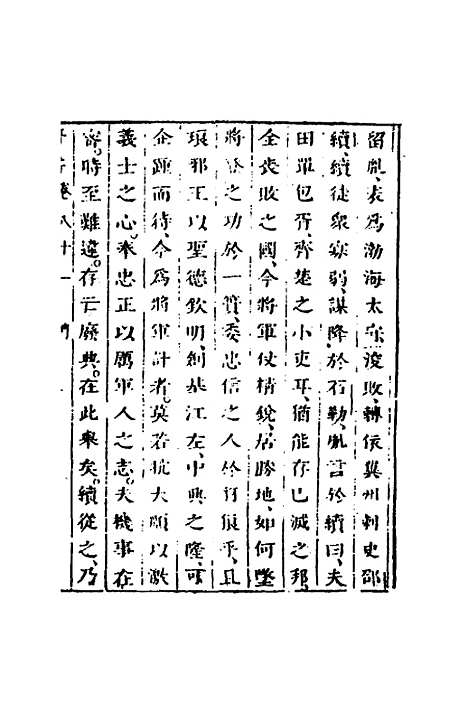 留胤、表爲渤海太守、浚敗、轉依冀州刺史邵
續、續徒衆寡弱、謀降於石勒、胤言於續曰、夫
田單包胥、齊楚之小吏耳、猶能存已滅之邦、
全喪敗之國、今將軍仗精銳、居勝地、如何墜
將登之功於一蕢、委忠信之人於豺狼乎、且
琅邪王以聖德欽明、創基江左、中興之隆、可
企踵而待、今爲將軍計者、莫若抗大順以激
義士之心、奉忠正以厲軍人之志。夫機事在
密。時至難違。存亡廢興。在此舉矣。續從之、乃
晉書卷八十一